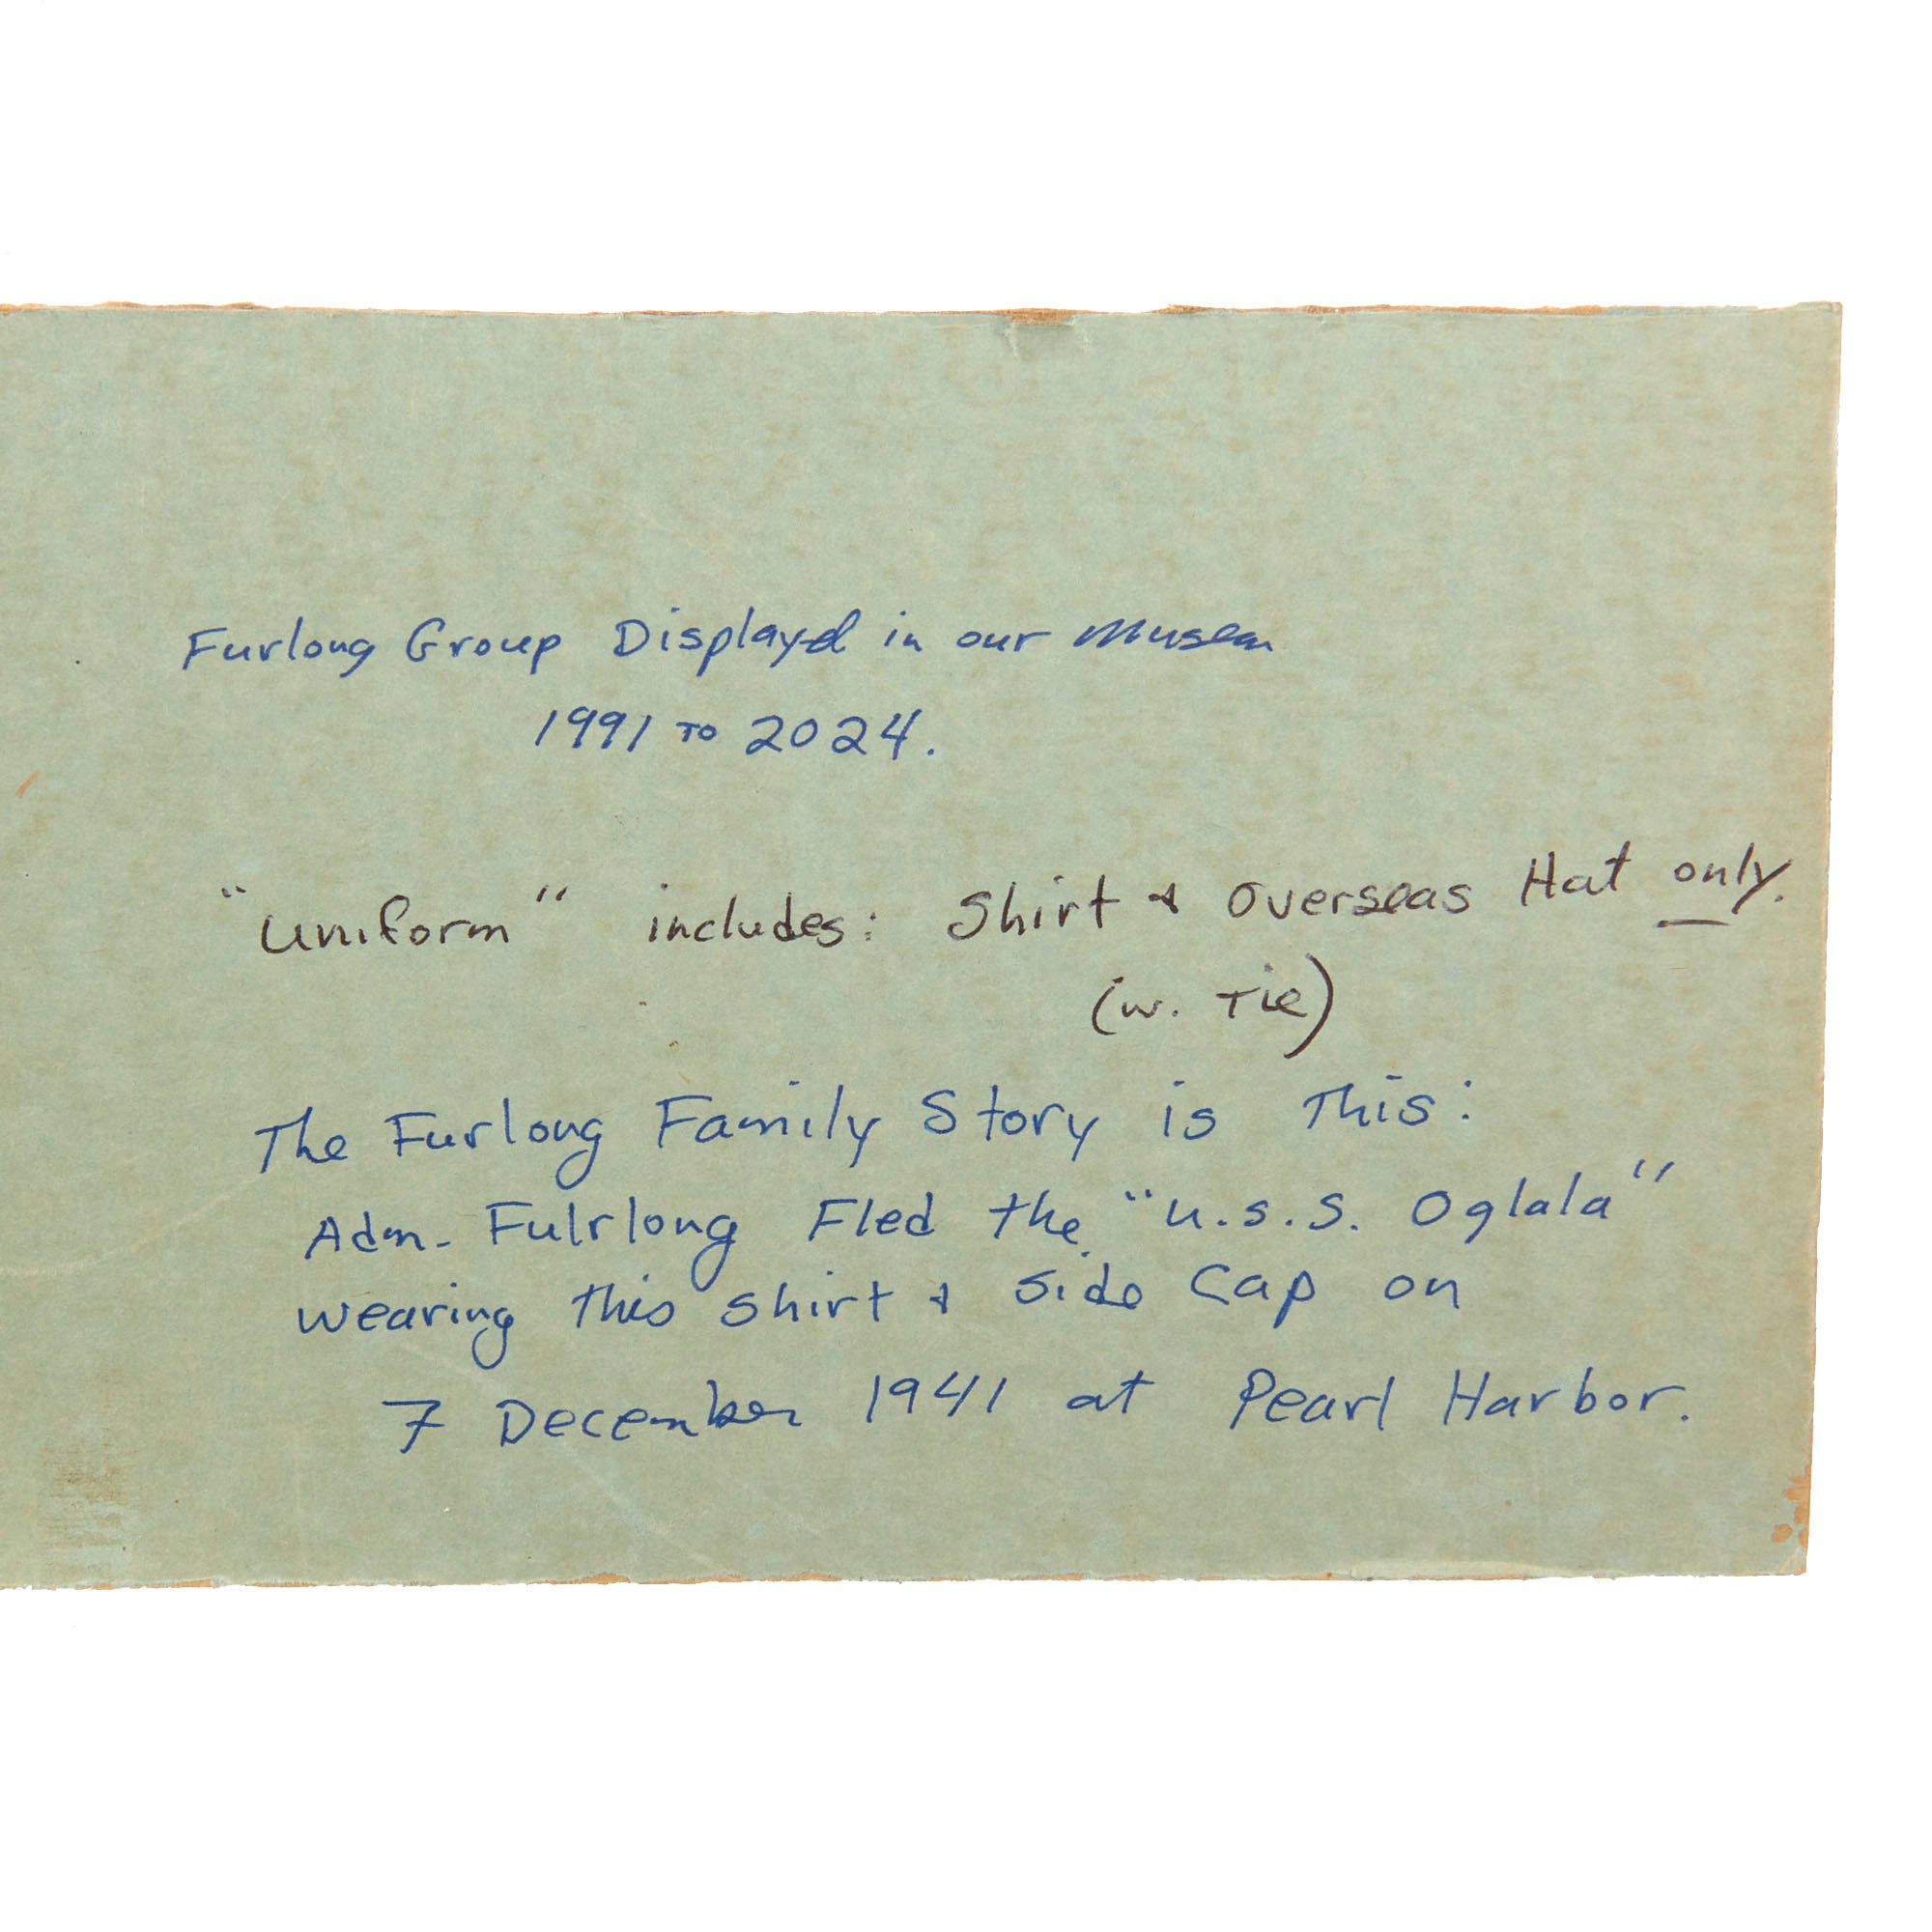 Furlong Group Displayd in our Museum
1991 TO 2024.
"Uniform" includes: Shirt & Overseas Hat only.
(w. Tie)
The Furlong Family Story is This:
Adm. Fulrlong Fled the "U.S.S. Oglala"
wearing this shirt & Side Cap on
7 December 1941 at Pearl Harbor.